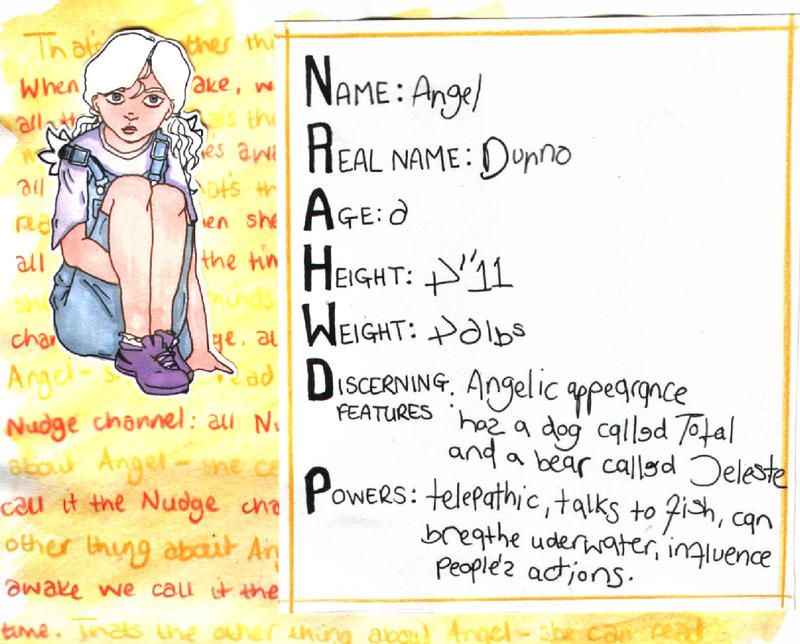 That's other
When
all
all
all the
minds
Angel - she read
Nudge channel: all
about Angel - she
call it the Nudge
other thing about
awake we call it the
time. Thats the other thing about Angel - she can read
NAME: Angel
REAL NAME: Dunno
AGE: 6
HEIGHT: 4"11
WEIGHT: 46lbs
DISCERNING FEATURES: Angelic appearance
has a dog called Total
and a bear called Celeste
POWERS: telepathic, talks to fish, can
breathe uderwater, influence
people's actions.